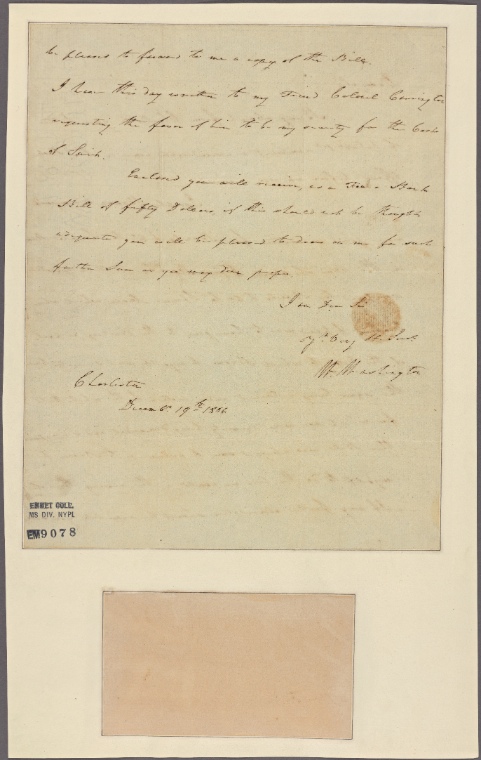 be pleased to forward to me a copy of the Bill.
I have this day written to my Friend Colonel Covington
requesting the favor of him to be my security for the Costs
of Suit.
Enclosed you will receive, as a Fee a Bank
Bill of fifty Dollars, if this should not be thought
adequate you will be pleased to draw on me for such
further Sum as you may deem proper
I am Dear Sir
Yr. Very Hl. Servt
Wm Washington
Charleston
Decembr. 19th
EMMET COLL.
MS DIV. NYPL
EM9078